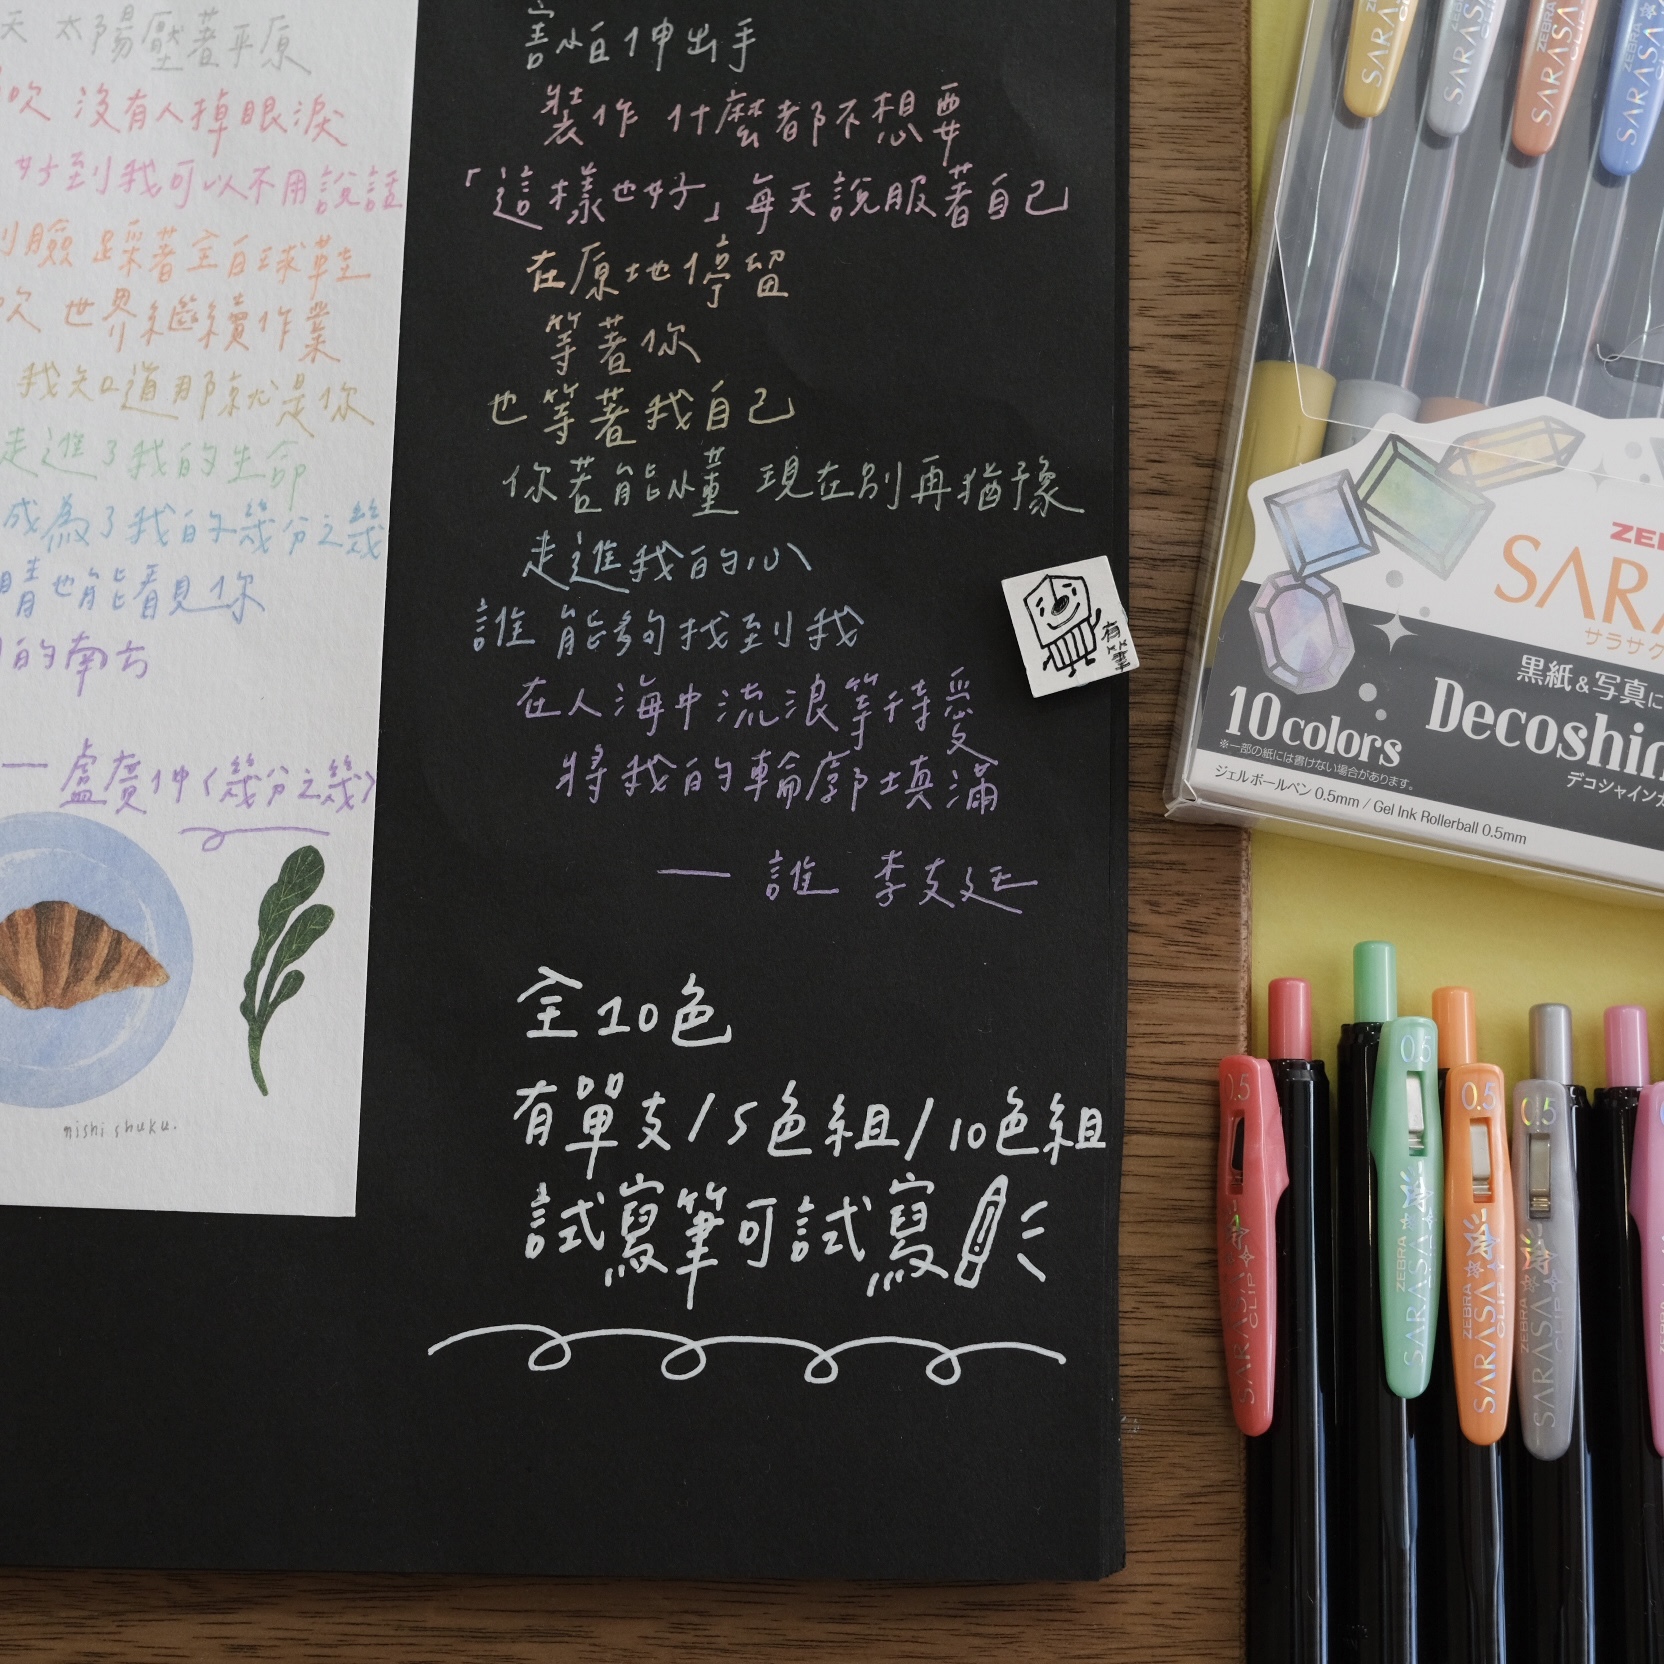 天 太陽壓著平原
吹 沒有人掉眼淚
好到我可以不用說話
臉 踩著全白球鞋
吹 世界繼續作業
我知道那就是你
走進了我的生命
成為了我的幾分之幾
睛也能看見你
的南方
— 盧廣仲〈幾分之幾〉
nishi shuku.
害怕伸出手
裝作 什麼都不想要
「這樣也好」每天說服著自己
在原地停留
等著你
也等著我自己
你若能懂 現在別再猶豫
走進我的心
誰 能夠找到我
在人海中流浪等待愛
將我的輪廓填滿
— 誰 李友廷
全10色
有單支/5色組/10色組
試寫筆可試寫
有筆
ZEBRA SARASA CLIP
ZEB
SARA
サラサク
黒紙&写真に
Decoshin
デコシャインカ
10 colors
※一部の紙には書けない場合があります。
ジェルボールペン 0.5mm / Gel Ink Rollerball 0.5mm
0.5 SARASA CLIP
0.5 ZEBRA SARASA CLIP
0.5 ZEBRA SARASA CLIP
0.5 ZEBRA SARASA CLIP